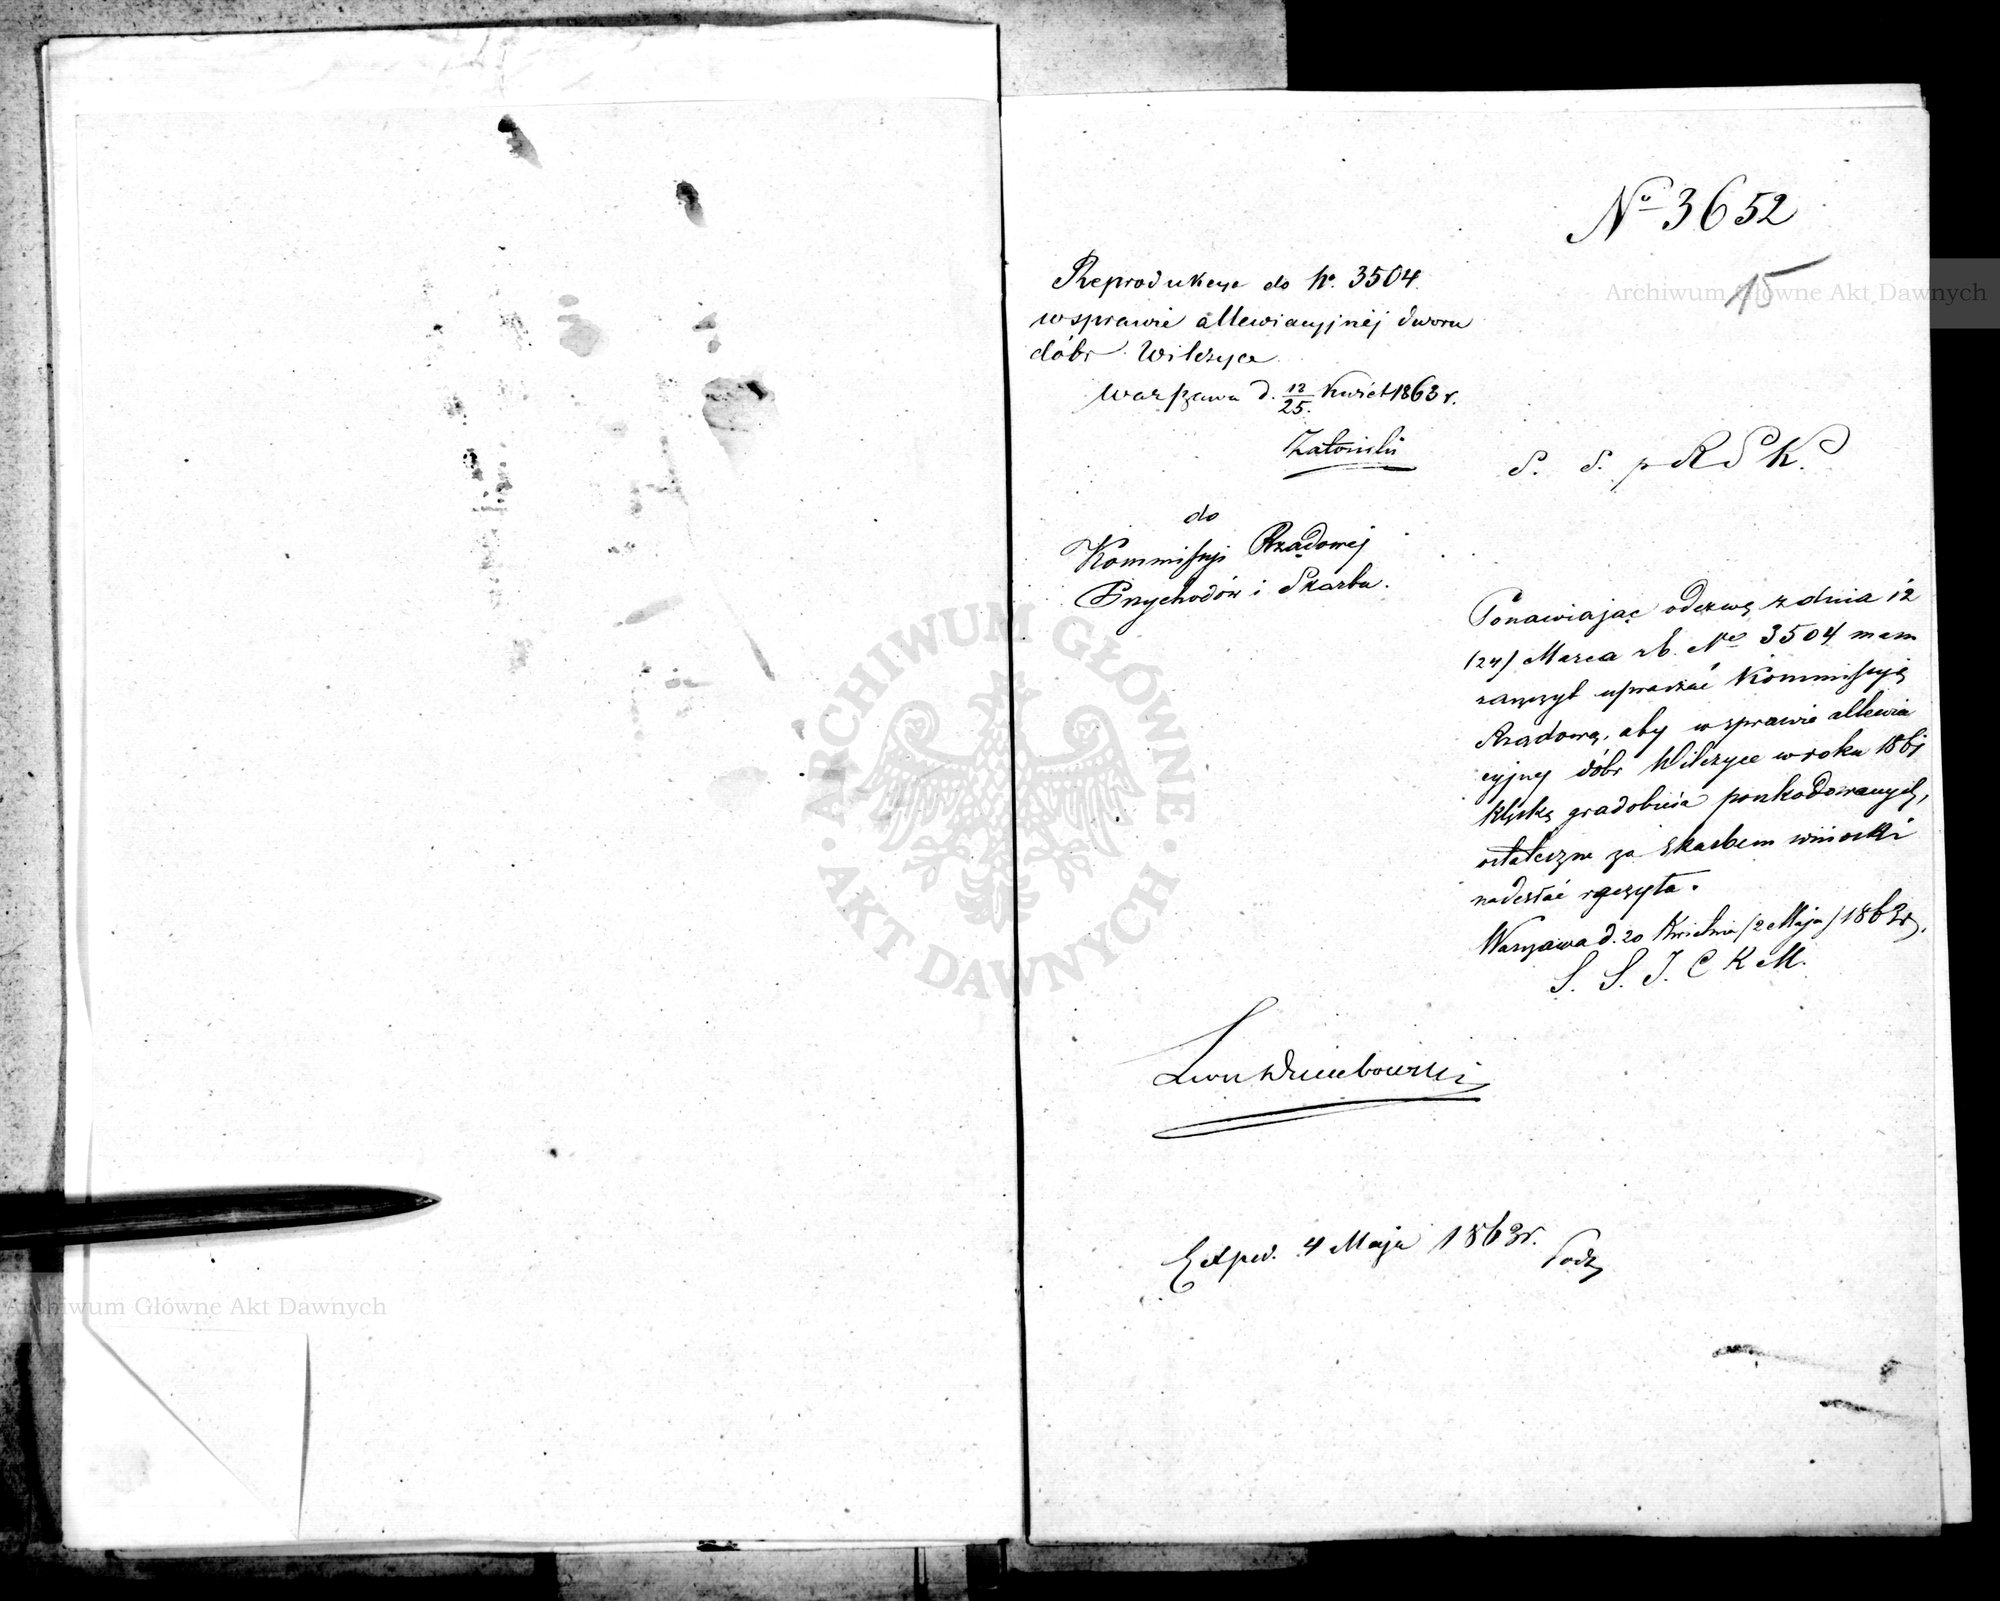 No 3652
15
Reprodukcya do No. 3504
w sprawie allewiacyjnéj dworu
dóbr Wilczyce
Warszawa d. 13/25. Kwiet 1863 r.
S. S. p R P K.
do
Kommissyi Rządowej
Przychodów i Skarbu.
Ponawiając odezwę z dnia 12
/24/ Marca r.b. No 3504 mam
zaszczyt upraszać Kommissyję
Rządową, aby w sprawie allewia
cyjnej dóbr Wilczyce w roku 1861
klęską gradobicia poszkodowanych,
ostateczne za Skarbem wnioski
nadesłać raczyła.
Warszawa d. 20 Kwietnia /2 Maja/ 1863 r.
S. S. J. C K M.
Exped. 4 Maja 1863 r.
ARCHIWUM GŁÓWNE
AKT DAWNYCH
Archiwum Główne Akt Dawnych
Archiwum Główne Akt Dawnych